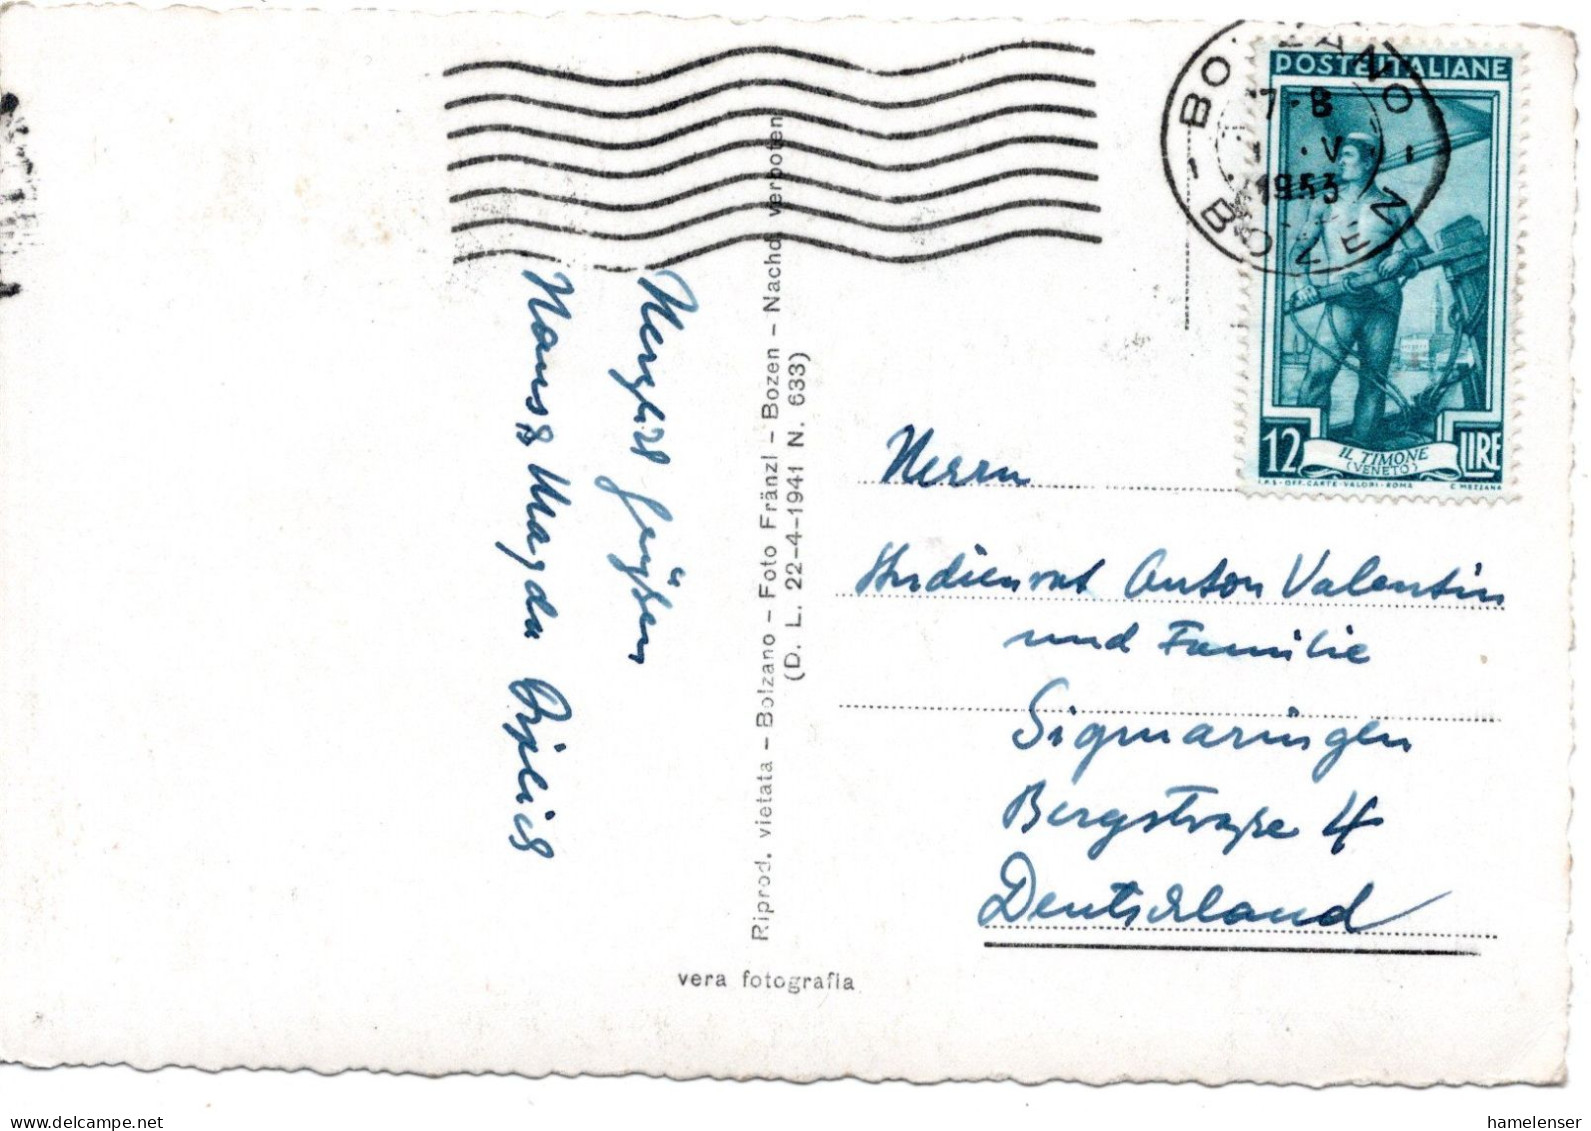 BOLZANO
BOZEN
7-8
V
1953
POSTE ITALIANE
12 LIRE
IL TIMONE
(VENETO)
I.P.S-OFF.CARTE-VALORI-ROMA C. MEZZANA
Herzlich grüßen
Hans & Magda
Riprod. vietata - Bolzano - Foto Fränzl - Bozen - Nachdr. verboten
(D. L. 22-4-1941 N. 633)
Herrn
Studienrat Anton Valentin
und Familie
Sigmaringen
Bergstraße 4
Deutschland
vera fotografia
delcampe.net
hamelenser